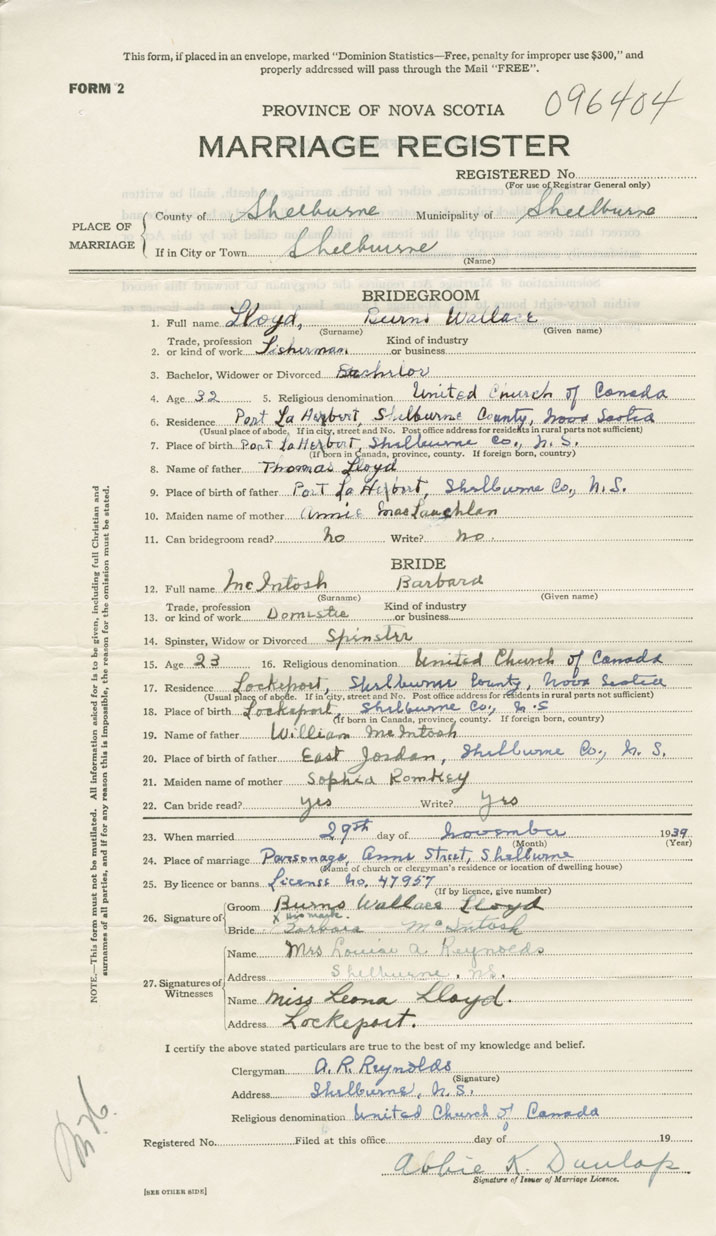 This form, if placed in an envelope, marked "Dominion Statistics—Free, penalty for improper use $300," and
properly addressed will pass through the Mail "FREE".
FORM 2
096404
PROVINCE OF NOVA SCOTIA
MARRIAGE REGISTER
REGISTERED No.
(For use of Registrar General only)
PLACE OF MARRIAGE
County of Shelburne Municipality of Shelburne
If in City or Town Shelburne
(Name)
BRIDEGROOM
1. Full name Lloyd, Burns Wallace
(Surname) (Given name)
2. Trade, profession or kind of work Fisherman Kind of industry or business
3. Bachelor, Widower or Divorced Bachelor
4. Age 32 5. Religious denomination United Church of Canada
6. Residence Port La Herbert, Shelburne County, Nova Scotia
(Usual place of abode. If in city, street and No. Post office address for residents in rural parts not sufficient)
7. Place of birth Port La Herbert, Shelburne Co., N. S.
(If born in Canada, province, county. If foreign born, country)
8. Name of father Thomas Lloyd
9. Place of birth of father Port La Herbert, Shelburne Co., N. S.
10. Maiden name of mother Annie MacLauchlan
11. Can bridegroom read? no Write? no.
BRIDE
12. Full name McIntosh Barbara
(Surname) (Given name)
13. Trade, profession or kind of work Domestic Kind of industry or business
14. Spinster, Widow or Divorced Spinster
15. Age 23 16. Religious denomination United Church of Canada
17. Residence Lockeport, Shelburne County, Nova Scotia
(Usual place of abode. If in city, street and No. Post office address for residents in rural parts not sufficient)
18. Place of birth Lockeport, Shelburne Co., N. S
(If born in Canada, province, county. If foreign born, country)
19. Name of father William McIntosh
20. Place of birth of father East Jordan, Shelburne Co., N. S.
21. Maiden name of mother Sophia Romkey
22. Can bride read? yes Write? yes
23. When married 29th day of November 1939
(Month) (Year)
24. Place of marriage Parsonage, Anns Street, Shelburne
(Name of church or clergyman's residence or location of dwelling house)
25. By licence or banns License No. 47957
(If by licence, give number)
26. Signature of
Groom Burns Wallace Lloyd
X His mark.
Bride Barbara McIntosh
27. Signatures of Witnesses
Name Mrs Louise A. Reynolds
Address Shelburne, N.S.
Name Miss Leona Lloyd.
Address Lockeport.
I certify the above stated particulars are true to the best of my knowledge and belief.
Clergyman A. R. Reynolds
(Signature)
Address Shelburne, N. S.
Religious denomination United Church of Canada
Registered No. Filed at this office day of 19
Abbie K. Dunlop
Signature of Issuer of Marriage Licence.
[SEE OTHER SIDE]
NOTE.—This form must not be mutilated. All information asked for is to be given, including full Christian and
surnames of all parties, and if for any reason this is impossible, the reason for the omission must be stated.